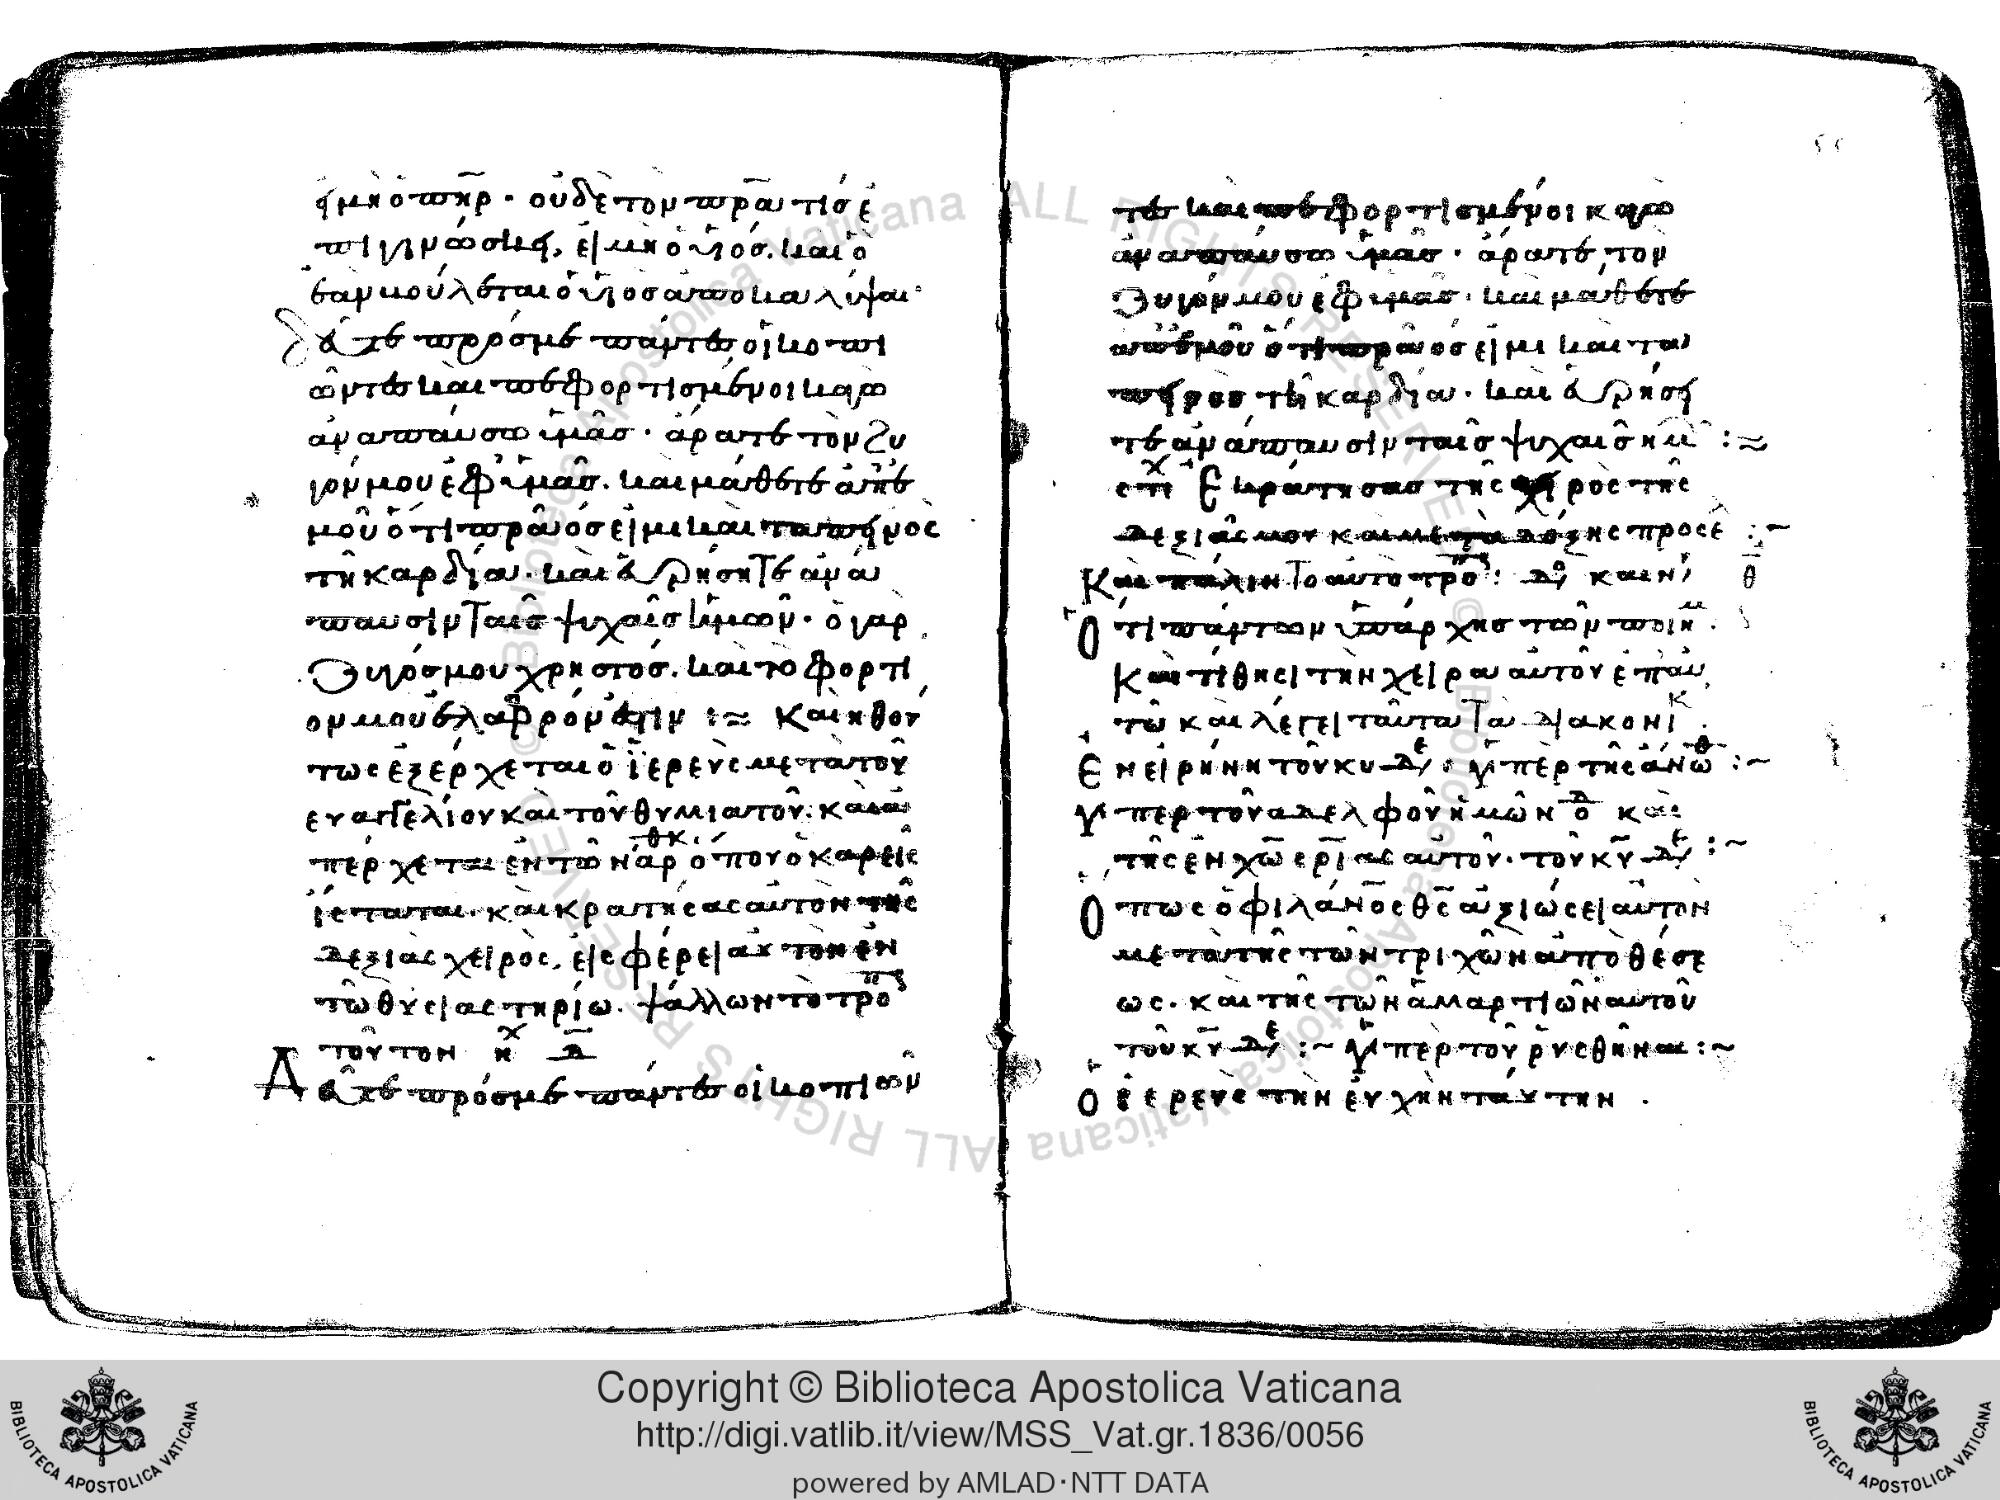 εἰ μὴ ὁ πηρ· οὐδὲ τὸν πρα τὶς ἐ
πιγινώσκει, εἰ μὴ ὁ υἱὸς. καὶ ὁ
ἐὰν βούλεται ὁ υἱὸς ἀποκαλύψαι·
δεῦτε πρός με πάντες οἱ κοπι
ῶντες καὶ πεφορτισμένοι καγω
ἀναπαύσω ὑμᾶς· ἄρατε τὸν ζυ
γόν μου ἐφ ὑμᾶς. καὶ μάθετε ἀπ ἐ
μοῦ ὅτι πρᾶος εἰμι καὶ ταπεινὸς
τῆ καρδία· καὶ εὑρήσητε ἀνά
παυσιν ταῖς ψυχαῖς ὑμῶν· ὁ γὰρ
ζυγός μου χρηστός. καὶ τὸ φορτί
ον μου ἐλαφρόν ἐστιν :~ Καὶ ηθ οὕ
τως ἐξέρχεται ὁ ἱερεὺς μετὰ τοῦ
εὐαγγελίου καὶ τοῦ θυμιατοῦ. καὶ ἀ
πέρχεται ἐν τῶ νάρθκ. ὅπου ὁ καρεὶς
ἵσταται. καὶ κρατήσας αὐτὸν τῆς
δεξιᾶς χειρὸς, εἰσφέρει αὐτὸν ἐν
τῶ θυσιαστηρίω. ψάλλων τὸ τρο
τοῦτον ηχ δ
Δεῦτε πρός με πάντες οἱ κοπιῶν
τες καὶ πεφορτισμένοι καγω
ἀναπαύσω ὑμᾶς· ἄρατε τὸν
ζυγόν μου ἐφ ὑμᾶς· καὶ μάθετε
ἀπ ἐμοῦ ὅτι πρᾶος εἰμι καὶ τα
πεινος τῆ καρδία· καὶ εὑρήσε
τε ἀνάπαυσιν ταῖς ψυχαῖς ημ :~
στιχ Ἐκράτησας τῆς χειρὸς τῆς
δεξιᾶς μου καὶ μετὰ δόξης προσε :~
Καὶ πάλιν τὸ αὐτὸ τροπ: δο καὶ νῦ
Ὅτι πάντων ὑπάρχης τῶν ποιημ.
Κατίθησι τὴν χεῖρα αὐτοῦ ἐπαυ
τῶ καὶ λέγει ταῦτα τα διακονικ.
Ἐν εἰρήνη τοῦ κυ δε: Ὑπὲρ τῆς ἄνωθ :~
Ὑπερ τοῦ ἀδελφοῦ ἡμῶν οδ καὶ
τῆς ἐν χω ερίας αὐτοῦ· τοῦ κυ δε :~
Ὅπως ὁ φιλάνος θς ἀξιώσει αὐτὸν
μετὰ τῆς τῶν τριχῶν ἀποθέσε
ως. καὶ τῆς τῶν ἁμαρτιῶν αὐτοῦ
τοῦ κυ δε :~ Ὑπερ τοῦ ρυσθῆναι :~
Ὁ ἱερεὺς τὴν εὐχὴν ταύτην .
Copyright © Biblioteca Apostolica Vaticana
http://digi.vatlib.it/view/MSS_Vat.gr.1836/0056
powered by AMLAD·NTT DATA
BIBLIOTECA APOSTOLICA VATICANA
BIBLIOTECA APOSTOLICA VATICANA